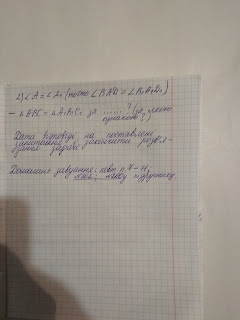 2) ∠A = ∠A₁ (тобто ∠BAD = ∠B₁A₁D₁)
– ∠ABC = ∠A₁B₁C₁ за ......? (за якою
ознакою?)
Дати відповіді на поставлені
запитання, закінчити розв'я-
зання задачі
Домашнє завдання: повт. п. 7
підручнику.